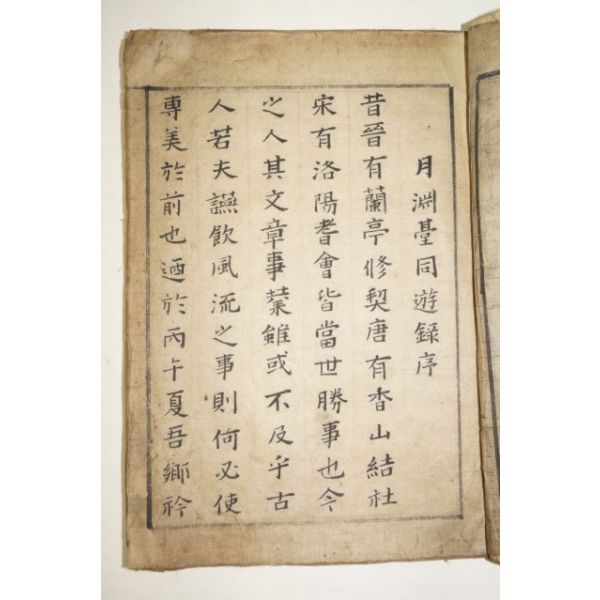 月淵臺同遊錄序
昔晉有蘭亭修契唐有香山結社
宋有洛陽耆會皆當世勝事也今
之人其文章事業雖或不及乎古
人若夫讌飮風流之事則何必使
專美於前也廼於丙午夏吾鄕衿